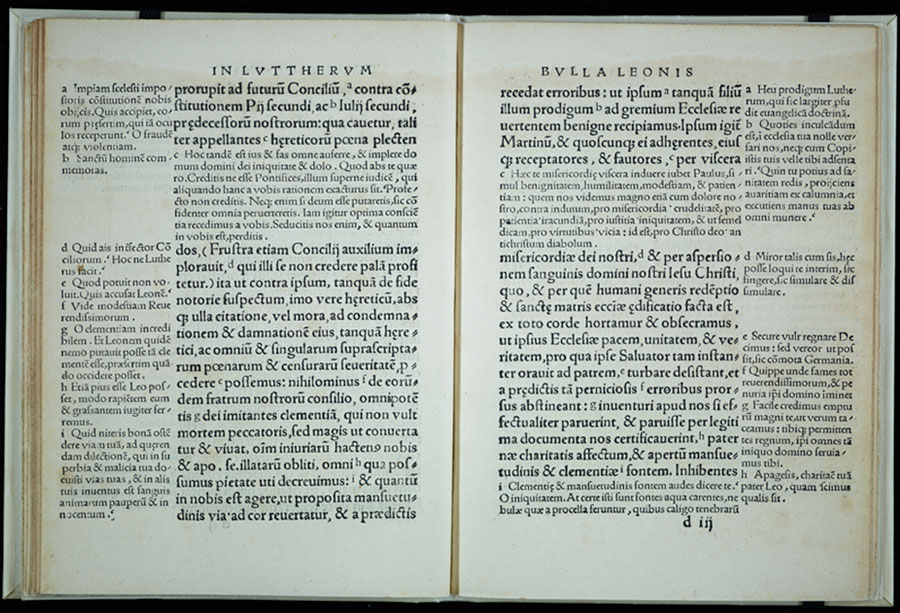 IN LVTTHERVM
a Impiam scelesti impo⸗
storis cõstitutionẽ nobis
obijcis. Quis accipiet, co⸗
rum præsertim, qui iã ocu
los receperunt. O fraudẽ
atq; violentiam.
b Sanctũ hominẽ com⸗
memoras.
prorupit ad futurũ Conciliũ, a contra cõ⸗
stitutionem Pij secundi, ac b Iulij secundi,
prędecessorũ nostrorum: qua cauetur, tali
ter appellantes c hęreticorũ pœna plecten
c Hoc tandẽ est ius & fas omne auferre, & implere do
mum domini dei iniquitate & dolo. Quod abs te quæ
ro. Creditis ne esse Pontifices, illum superne iudicẽ, qui
aliquando hanc a vobis rationem exacturus sit. Profe⸗
cto non creditis. Neq; enim si deum esse putaretis, sic cõ
fidenter omnia peruerteretis. Iam igitur optima conscię
tia recedimus a vobis. Seductis nos enim, & quantum
in vobis est, perditis.
d Quid ais insector Cõ
ciliorum. Hoc ne Luthe
rus facit.
e Quod potuit non vo⸗
luit. Quis accusat Leonẽ.
f Vide modestiam Reue
rendissimorum.
g O clementiam incredi
bilem. Et Leonem quidẽ
nemo putauit posse tã cle
mentẽ esse, præsertim quã
do occidere posset.
h Etiã pius esse Leo pos⸗
set, modo rapiẽtem eum
& grassantem iugiter fer⸗
remus.
i Quid niteris bonã ostẽ
dere viam tuã, ad queren
dam dilectionẽ, qui in su
perbia & malicia tua do⸗
cuisti vias tuas, & in alis
tuis inuentus est sanguis
animarum pauperũ & in
nocentum.
dos, ( Frustra etiam Concilij auxilium im⸗
plorauit, d qui illi se non credere palã profi
tetur.) ita ut contra ipsum, tanquã de fide
notorie suspectum, imo vere hęreticũ, abs
q; ulla citatione, vel mora, ad condemna⸗
tionem & damnationẽ eius, tanquã hęre⸗
tici, ac omniũ & singularum suprascripta⸗
rum pœnarum & censurarũ seueritatẽ, p⸗
cedere e possemus: nihilominus f de eorũ⸗
dem fratrum nostrorũ consilio, omnipotẽ
tis g dei imitantes clementiã, qui non vult
mortem peccatoris, sed magis ut conuerta
tur & viuat, oĩm iniuriarũ hactenꝰ nobis
& apo. se. illatarũ obliti, omni h qua pos⸗
sumus pietate uti decreuimus: i & quantũ
in nobis est agere, ut proposita mansuetu⸗
dinis via ad cor reuertatur, & a prædictis
BVLLA LEONIS
recedat erroribus: ut ipsum a tanquã filiũ
illum prodigum b ad gremium Ecclesiæ re
uertentem benigne recipiamus. Ipsum igiť
Martinũ, & quoscunq; ei adhęrentes, eius
q; receptatores, & fautores, c per viscera
a Heu prodigum Luthe⸗
rum, qui sic largiter psu⸗
dit euangelicã doctrinã.
b Quoties inculcãdum
est, ecclesia tua nolle ver⸗
sari nos, neq; cum Copi⸗
istis tuis velle tibi adsenta
ri. Quin tu potius ad sa⸗
nitatem redis, proijciens
auaritiam ex calumnia, et
excutiens manus tuas ab
omni munere.
c Hæc te misericordię viscera induere iubet Paulus, si⸗
mul benignitatem, humilitatem, modestiam, & patien⸗
tiam: quem nos videmus magno etiã cum dolore no⸗
stro, contra indutum, pro misericordia crudelitatẽ, pro
patientia iracundiã, pro iustitia iniquitatem, & ut semel
dicam, pro virtutibus vicia: id est, pro Christo deo an
tichristum diabolum.
misericordiæ dei nostri, d & per aspersio⸗
nem sanguinis domini nostri Iesu Christi,
quo, & per quẽ humani generis redẽptio
& sanctę matris ecclæ ędificatio facta est,
ex toto corde hortamur & obsecramus,
ut ipsius Ecclesiæ pacem, unitatem, & ve⸗
ritatem, pro qua ipse Saluator tam instan⸗
ter orauit ad patrem, e turbare desistant, et
a prędictis tã perniciosis f erroribus pror⸗
sus abstineant: g inuenturi apud nos si ef⸗
fectualiter paruerint, & paruisse per legiti
ma documenta nos certificauerint, h pater
næ charitatis affectum, & apertũ mansue⸗
tudinis & clementiæ i fontem. Inhibentes
d Miror talis cum sis, hęc
posse loqui te interim, sic
fingere, sic simulare & dis
simulare.
e Secure vult regnare De
cimus: sed vereor ut pos
sit, sic cõmota Germania.
f Quippe unde fames tot
reuerendissimorum, & pe
nuria ipi domino iminet
g Facile credimus emptu
rũ magni te, ut verum ta
ceamus: tibiq; permitten
tes regnum, ipi omnes tã
iniquo domino seruia⸗
mus tibi.
h Apagesis, charitatẽ tuã
pater Leo, quam scimus
qualis sit.
i Clementię & mansuetudinis fontem audes dicere te.
O iniquitatem. At certe isti sunt fontes aqua carentes, ne
bulæ quæ a procella feruntur, quibus caligo tenebrarũ
d iij